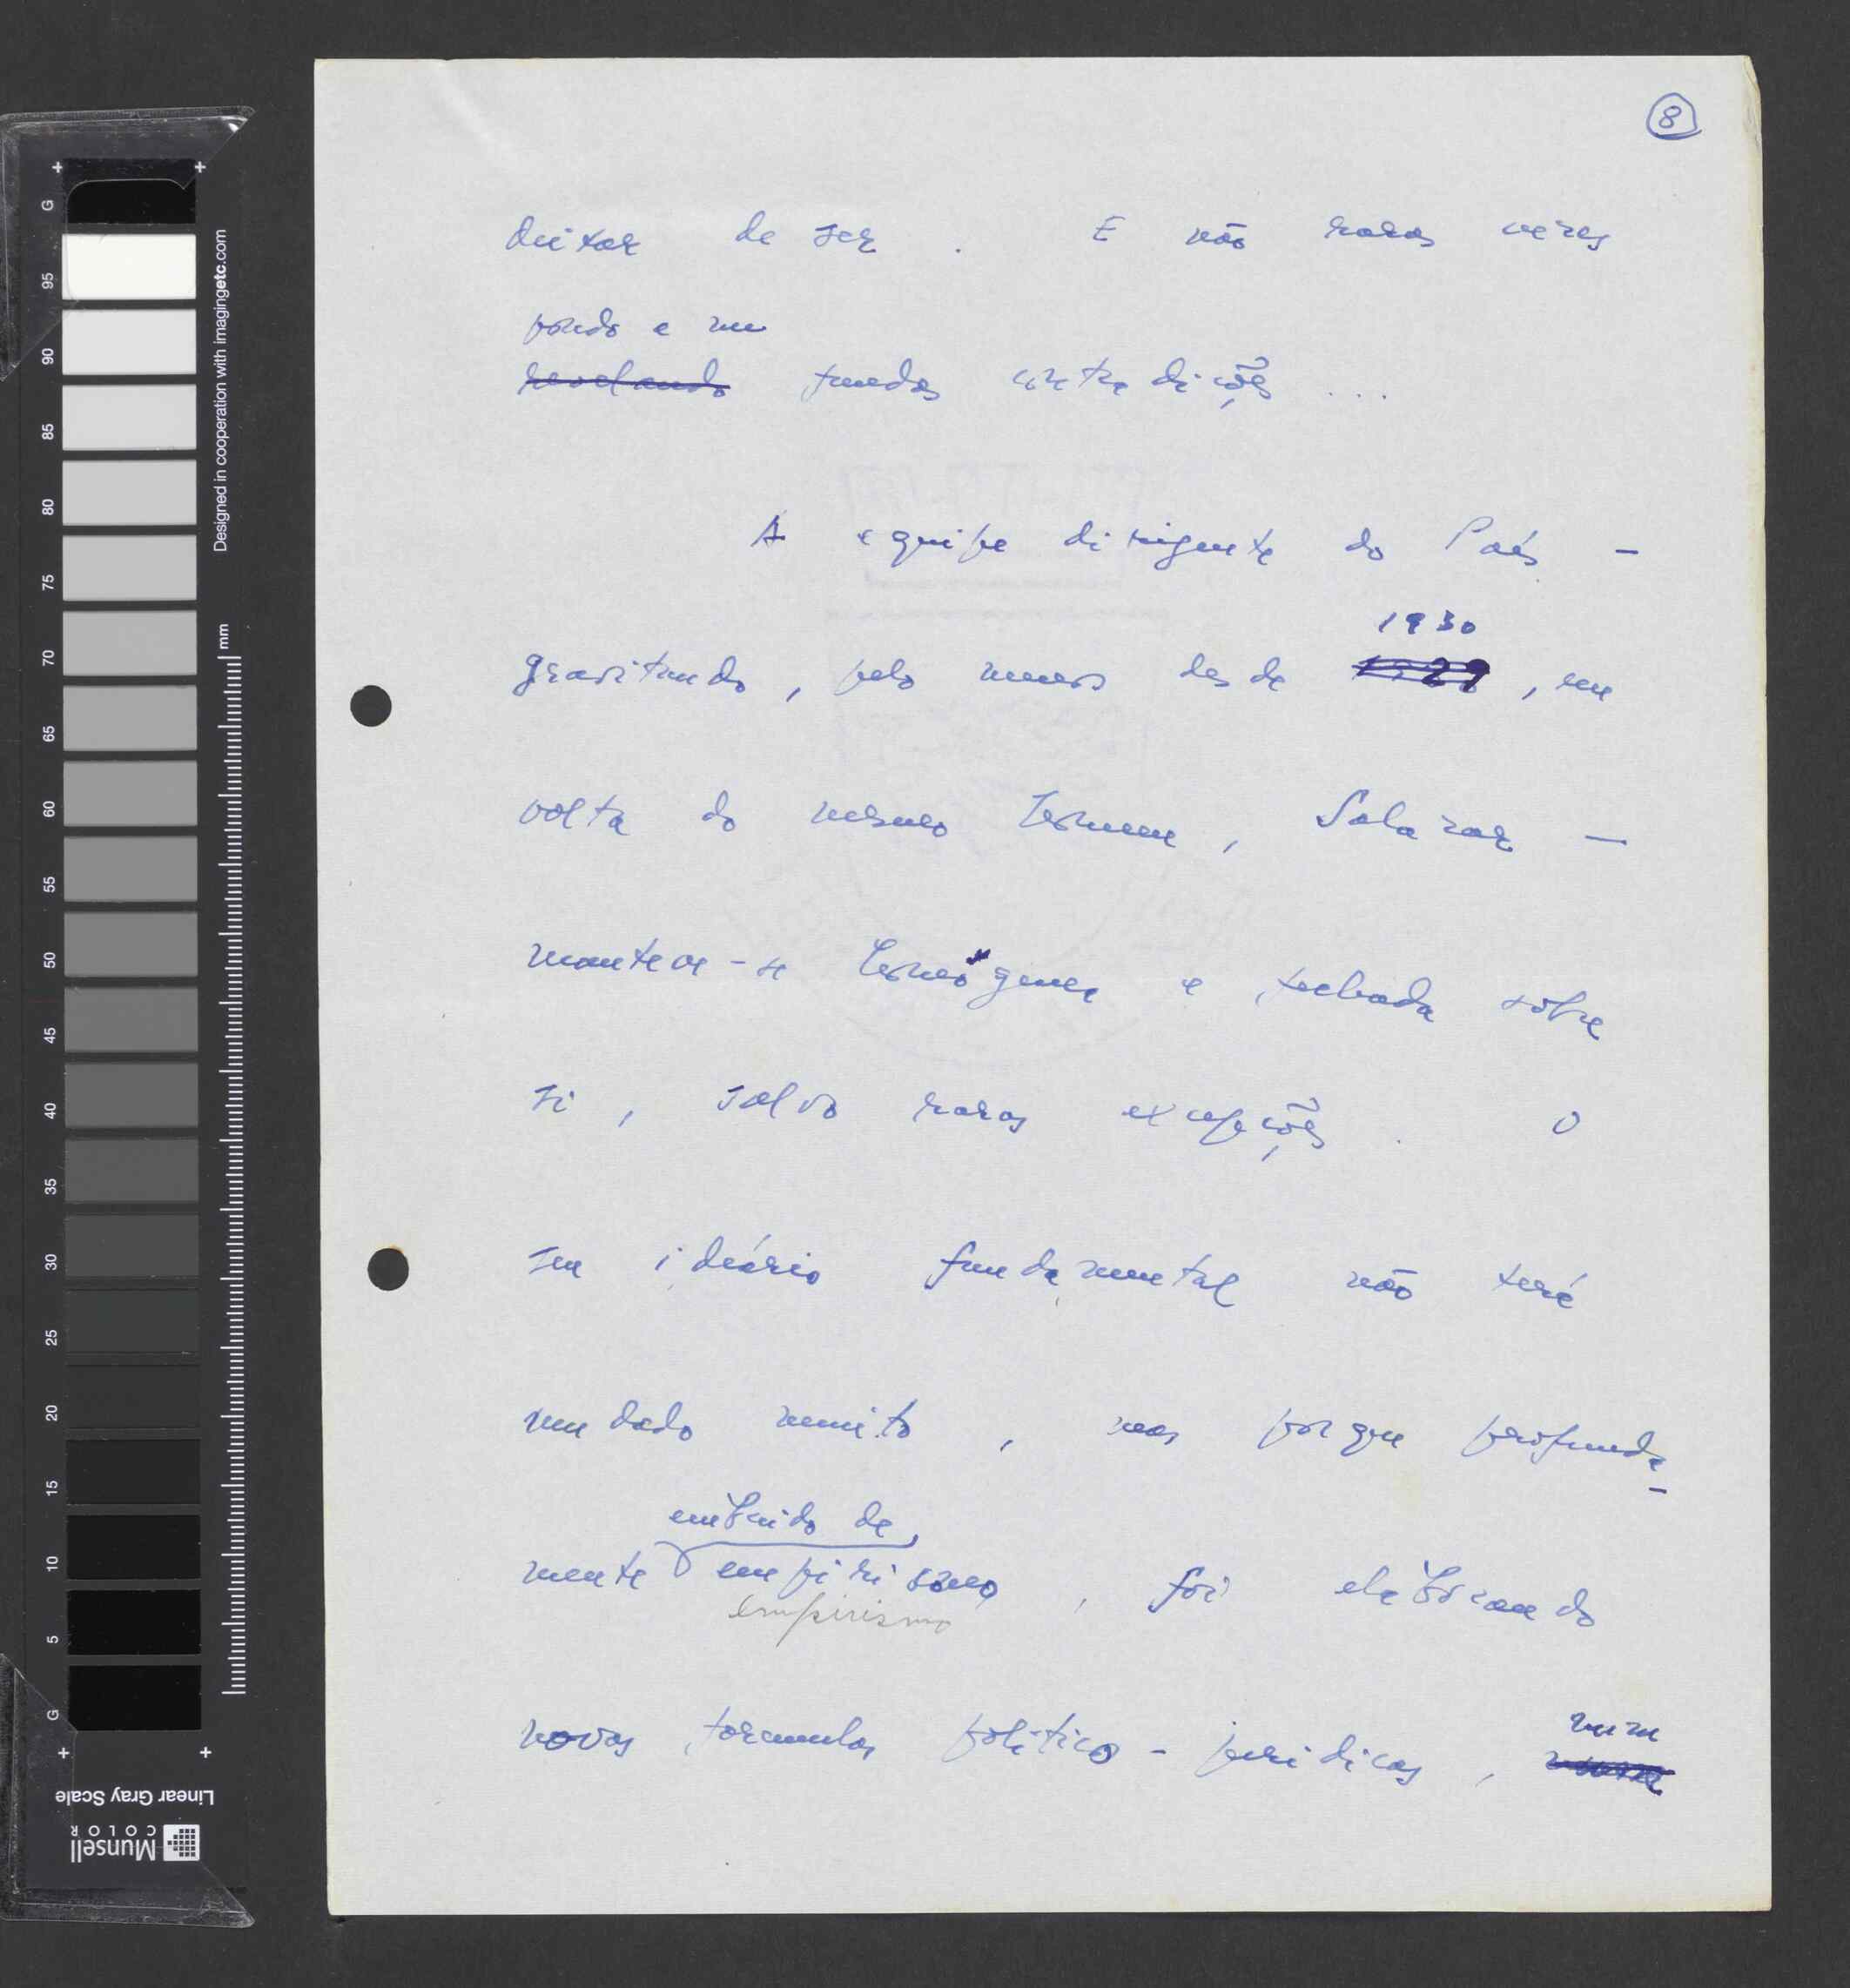 8
deixar de ser. E não raras vezes
pondo a nu
revelando fundas contradições ...
A equipe dirigente do País -
gravitando, pelo menos desde 1930
1928, em
volta do mesmo homem, Salazar -
manteve-se homogénea e fechada sobre
si, salvo raras excepções. O
seu ideário fundamental não terá
mudado muito, mas porque profunda-
embuido de
mente empirismo, foi elaborando
empirismo
novas fórmulas político-juridicas, num
G
95
90
85
80
75
70
65
60
55
50
45
40
35
30
25
20
15
10
5
G
Designed in cooperation with imagingetc.com
mm
Linear Gray Scale
Munsell
COLOR